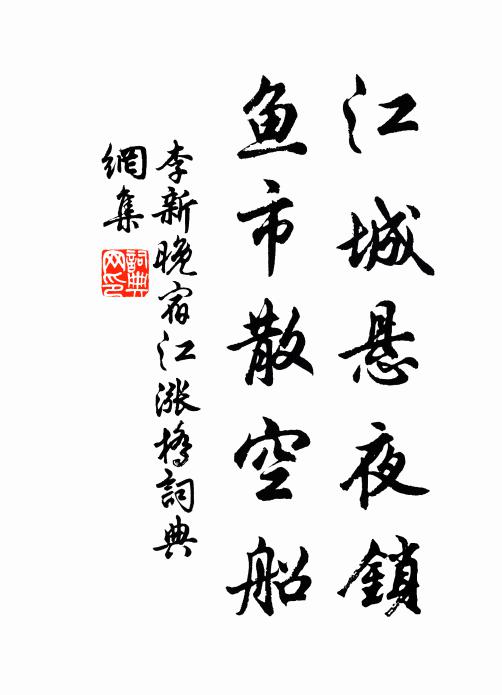 江城悬夜鎖
鱼市散空船
李新晚宿江涨橋詞典
網集
詞典
网印